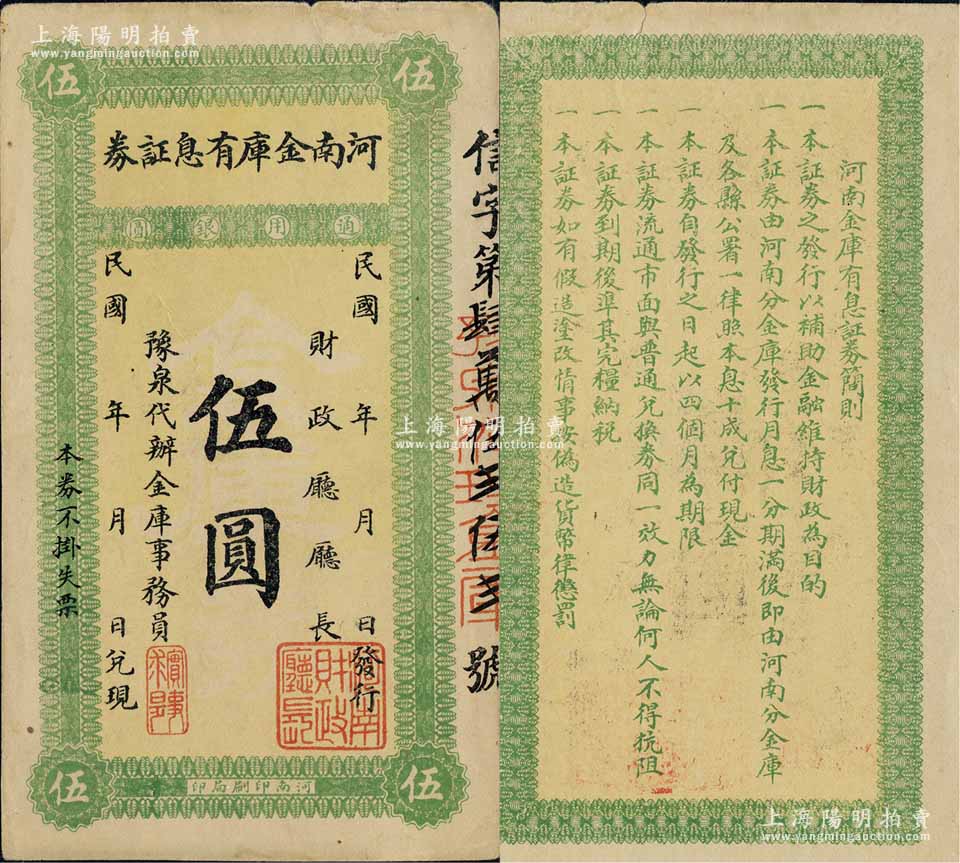 上海陽明拍賣
www.yangmingauction.com
伍
伍
河南金庫有息証券
通用銀圓
民國 年 月 日發行
財政廳廳長
伍圓
豫泉代辦金庫事務員
民國 年 月 日兌現
本券不掛失票
河南財政廳長
伍
伍
河南印刷局印
信字第肆萬伍
號
上海陽明拍賣
www.yangmingauction.com
河南金庫有息証券簡則
一 本証券之發行以補助金融維持財政為目的
一 本証券由河南分金庫發行月息一分期滿後即由河南分金庫
及各縣公署一律照本息十成兌付現金
一 本証券自發行之日起以四個月為期限
一 本証券流通市面與普通兌換券同一效力無論何人不得抗阻
一 本証券到期後準其完糧納稅
一 本証券如有假造塗改情事按偽造貨幣律懲罰
上海陽明拍賣
www.yangmingauction.com